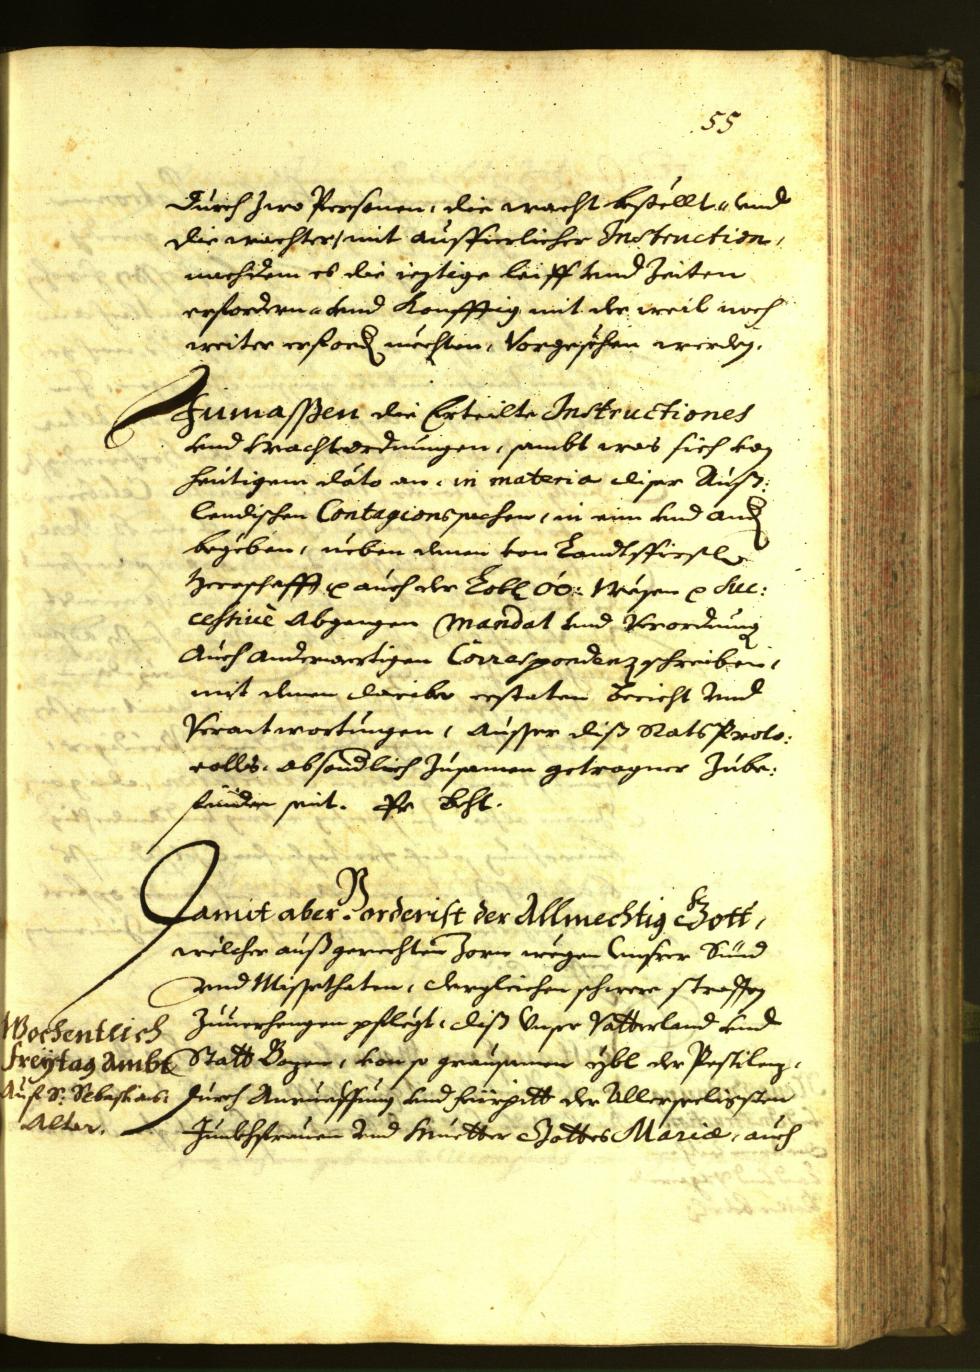 55
durch zwo Personen, die wacht bestellt, und
die wachter, mit ausfierlicher Instruction,
nachdem es die ieztige leiff und Zeiten
erfordern, und konfftig mit der weil noch
weiter erfordern mechten, Vorgesehen werden.
Inmassßen die Erteilte Instructiones
und wachtordnungen, sambt was sich von
heutigem dato an, in materia diser Auß:
lendischen Contagionssachen, in ein und ander
begeben, neben denen von Landtsfirstl
Herrschafft auch der Löbl OÖ: Wesen Suc:
cessivè Abgangen Mandat und Verordnung
Auch anderwertigen Correspondenzschreiben,
mit denen dariber erstaten Bericht und
Verantwortungen, Ausser diß Rats Proto:
colls, absonderlich zusamen getragner zube:
finden seit.
Damit aber Vorderist der Allmechtig Gott,
welcher auß gerechten Zorn wegen Unsrer Sünd
und Missethaten, dergleichen schwere straffen
Zuverhengen pflegt, diß Unser Vatterland und
Statt Bozen, von so grausamen ybl der Pestilenz,
durch Anrueffung und fürpitt der Allerseeligsten
Junckhfrauen und Muetter Gottes Mariæ, auch
Wochentlich
freytag Ambt
Auf S: Sebastians:
Altar.